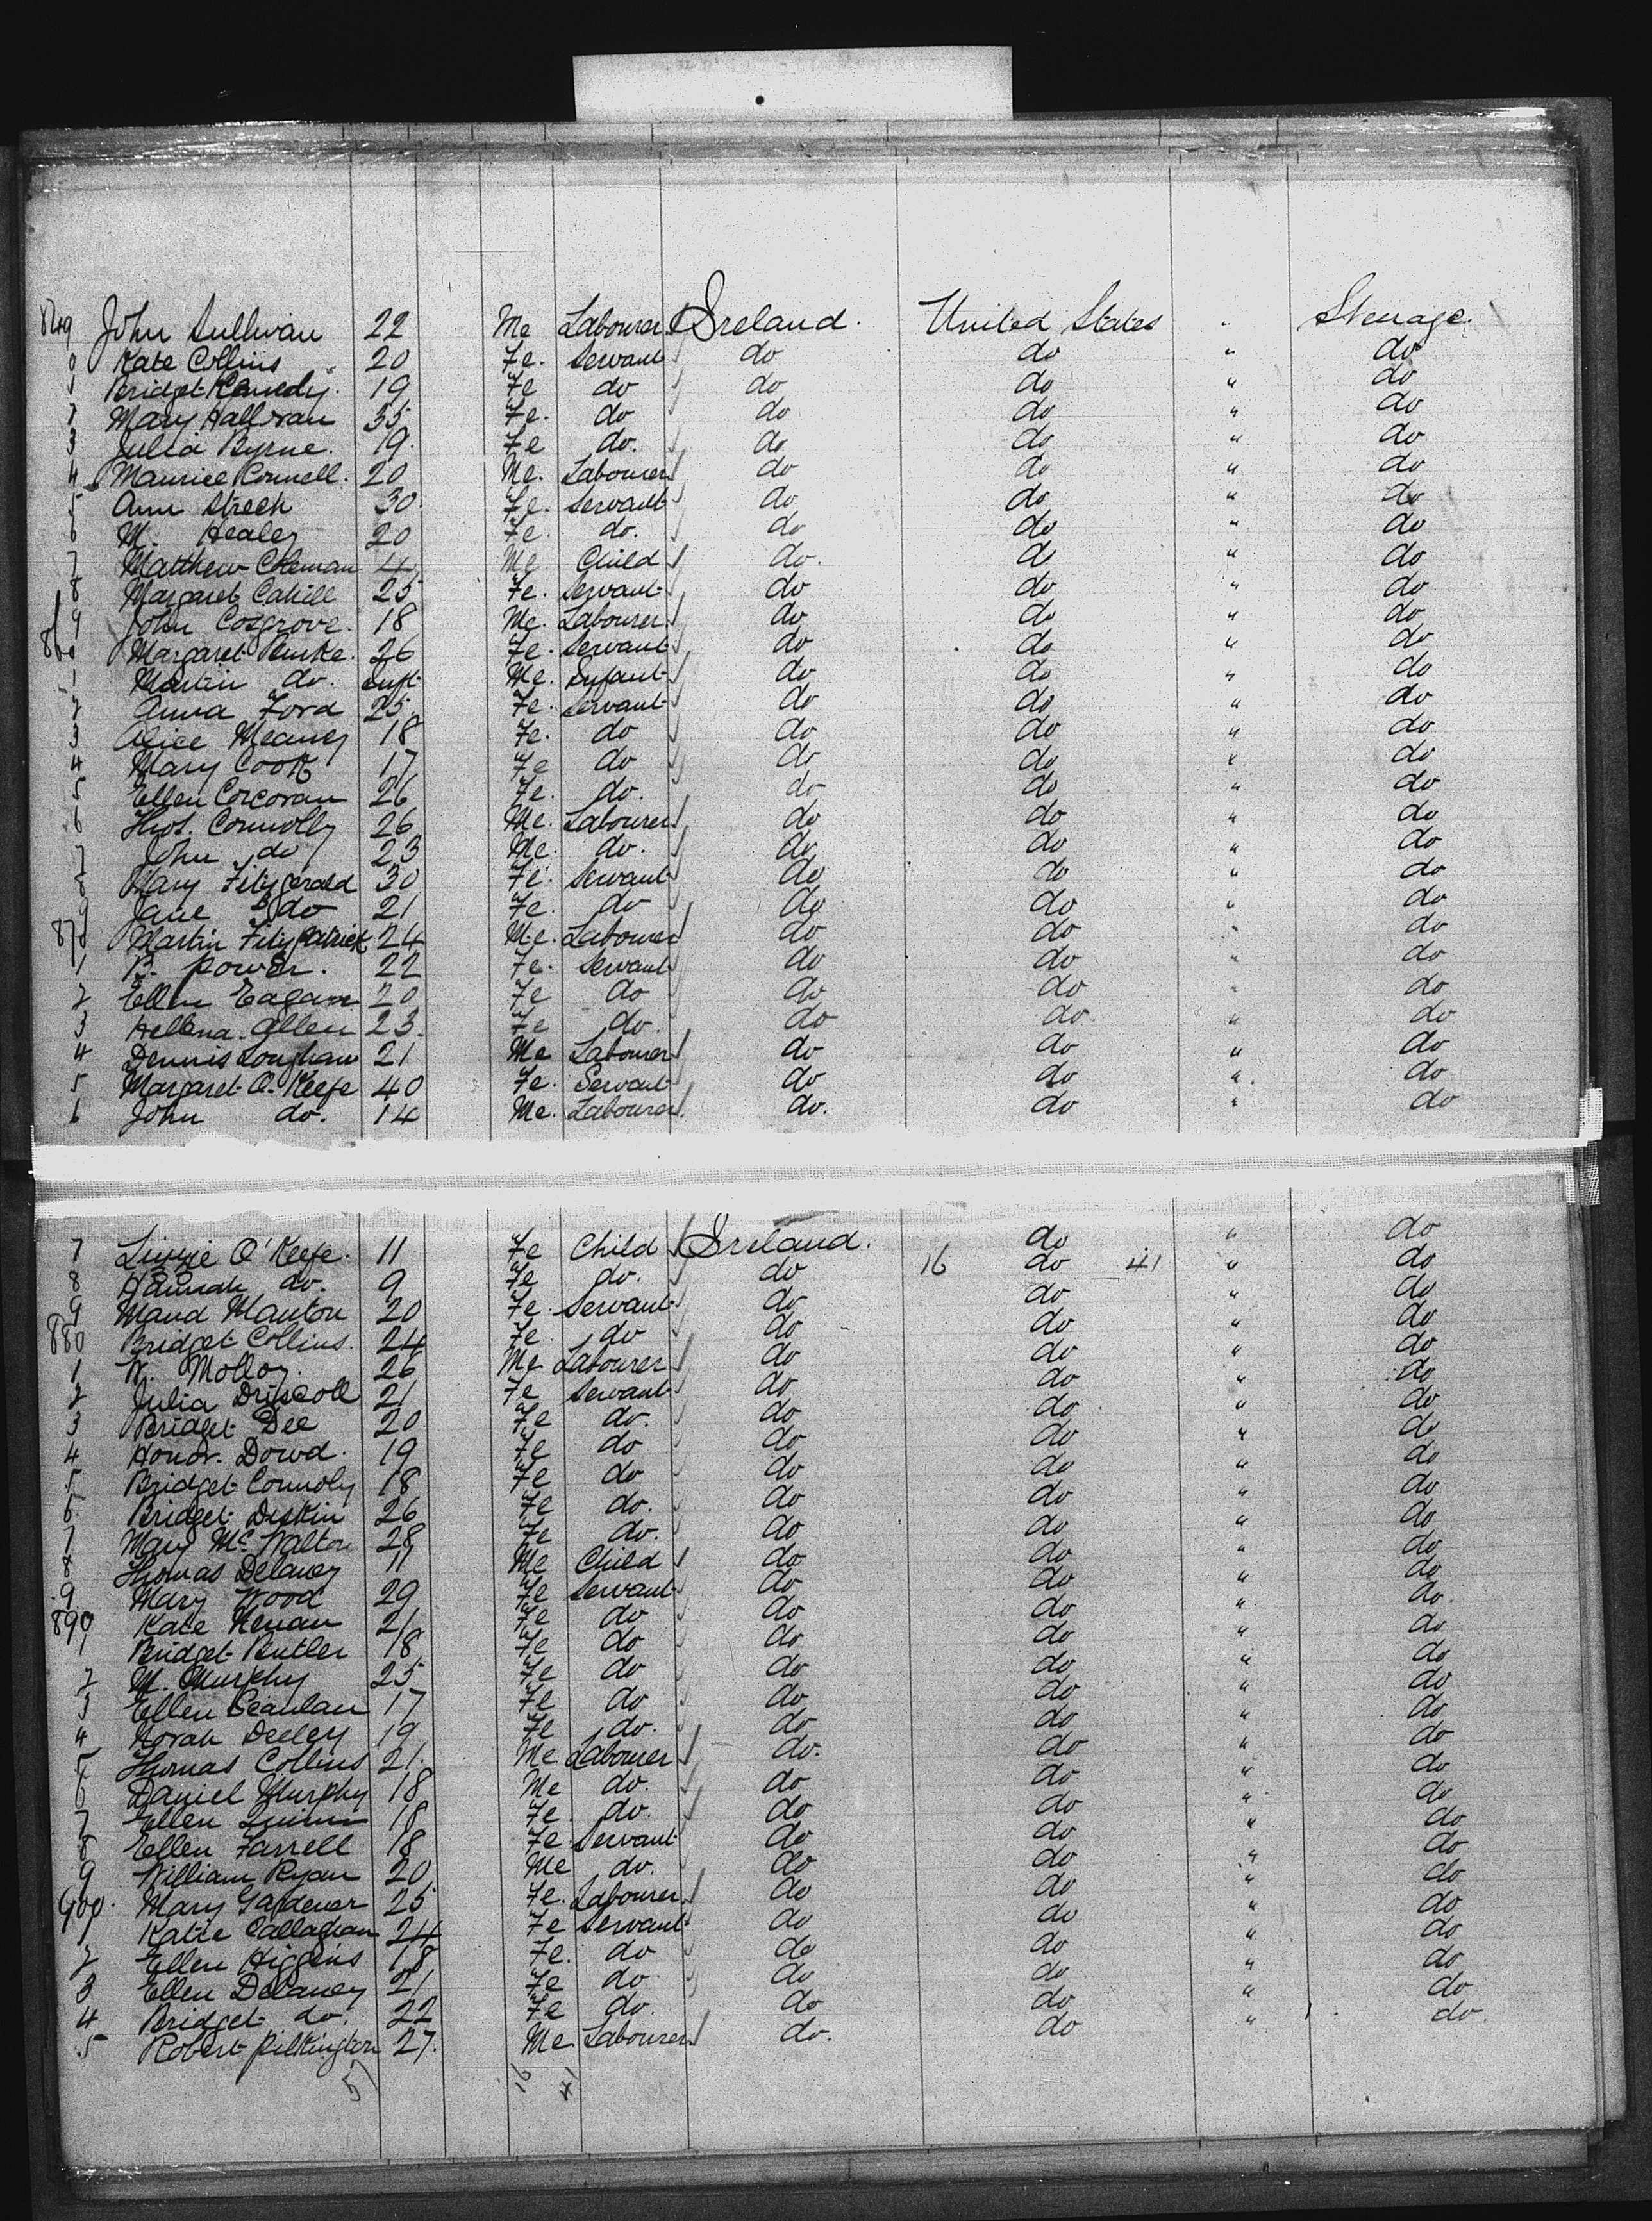 849 John Sullivan 22 Me Labourer Ireland. United States " Steerage.
0 Kate Collins 20 Fe. Servant do do " do
1 Bridget Kennedy. 19 Fe do do do " do
2 Mary Halloran 35 Fe. do do do " do
3 Julia Byrne. 19. Fe do. do do " do
4 Maurice Connell. 20 Me. Labourer do do " do
5 Ann 30. Fe. Servant do do " do
6 M. Healey 20 Fe. do. do do " do
7 Matthew Coleman 4 Me Child do. do " do
8 Margaret Cahill 25 Fe. Servant do do " do
9 John Cosgrove. 18 Me. Labourer do do " do
860 Margaret 26 Fe. Servant do do " do
1 Martin do. Inft. Me. Infant do do " do
2 Anna Ford 25. Fe. Servant do do " do
3 Alice Meaney 18 Fe. do do do " do
4 Mary Cook 17 Fe do do do " do
5 Ellen Corcoran 26 Fe. do. do do " do
6 Thos. Connolly 26 Me. Labourer do do " do
7 John do 23 Me. do. do do " do
8 Mary Fitzgerald 30 Fe. Servant do do " do
9 Jane do 21 Fe. do do do " do
870 Martin Fitzpatrick 24 Me. Labourer do do " do
1 B. Power. 22 Fe. Servant do do " do
2 Ellen Eagan 20 Fe do do do " do
3 Hellena Allen 23. Fe do. do do. " do
4 Dennis 21 Me Labourer do do " do
5 Margaret O. Keefe 40 Fe. Servant do do " do
6 John do. 14 Me. Labourer. do. do " do
7 Lizzie O'Keefe. 11 Fe Child Ireland. do " do
8 Hannah do. 9 Fe do. do 16 do 41 " do
9 Maud Manton 20 Fe. Servant do do " do
880 Bridget Collins. 24 Fe. do do do " do
1 W. Molloy. 26 Me Labourer do do " do
2 Julia Driscoll 21 Fe Servant do do " do
3 Bridget Dee 20 Fe do. do do " do
4 Honor. Dowd. 19 Fe do do do " do
5 Bridget Connoly 18 Fe do do do " do
6 Bridget Diskin 26 Fe do. do do " do
7 Mary McWalton 28 Fe do. do do " do
8 Thomas Delaney 11 Me Child do do " do
9 Mary Wood 29 Fe Servant do do " do
890 Kate Henan 21 Fe do do do " do.
1 Bridget Butler 18 Fe do do do " do
2 M. Murphy 25 Fe do do do " do
3 Ellen Scanlan 17 Fe do do do " do
4 Norah Deeley 19 Fe do. do do " do
5 Thomas Collins 21. Me Labourer do. do " do
6 Daniel Murphy 18 Me do. do do " do
7 Ellen Quinn 18 Fe. do. do do " do
8 Ellen Farrell 18 Fe Servant do do " do
9 William Ryan 20 Me do. do do " do
900. Mary Gardener 25 Fe. Labourer do do " do
1 Katie Callaghan 24 Fe Servant do do " do
2 Ellen Higgins 18 Fe. do do do " do
3 Ellen Delaney 21 Fe do do do " do
4 Bridget do. 22 Fe do. do do " do
5 Robert Pilkington 27. Me Labourer do. do " do.
57 16 41